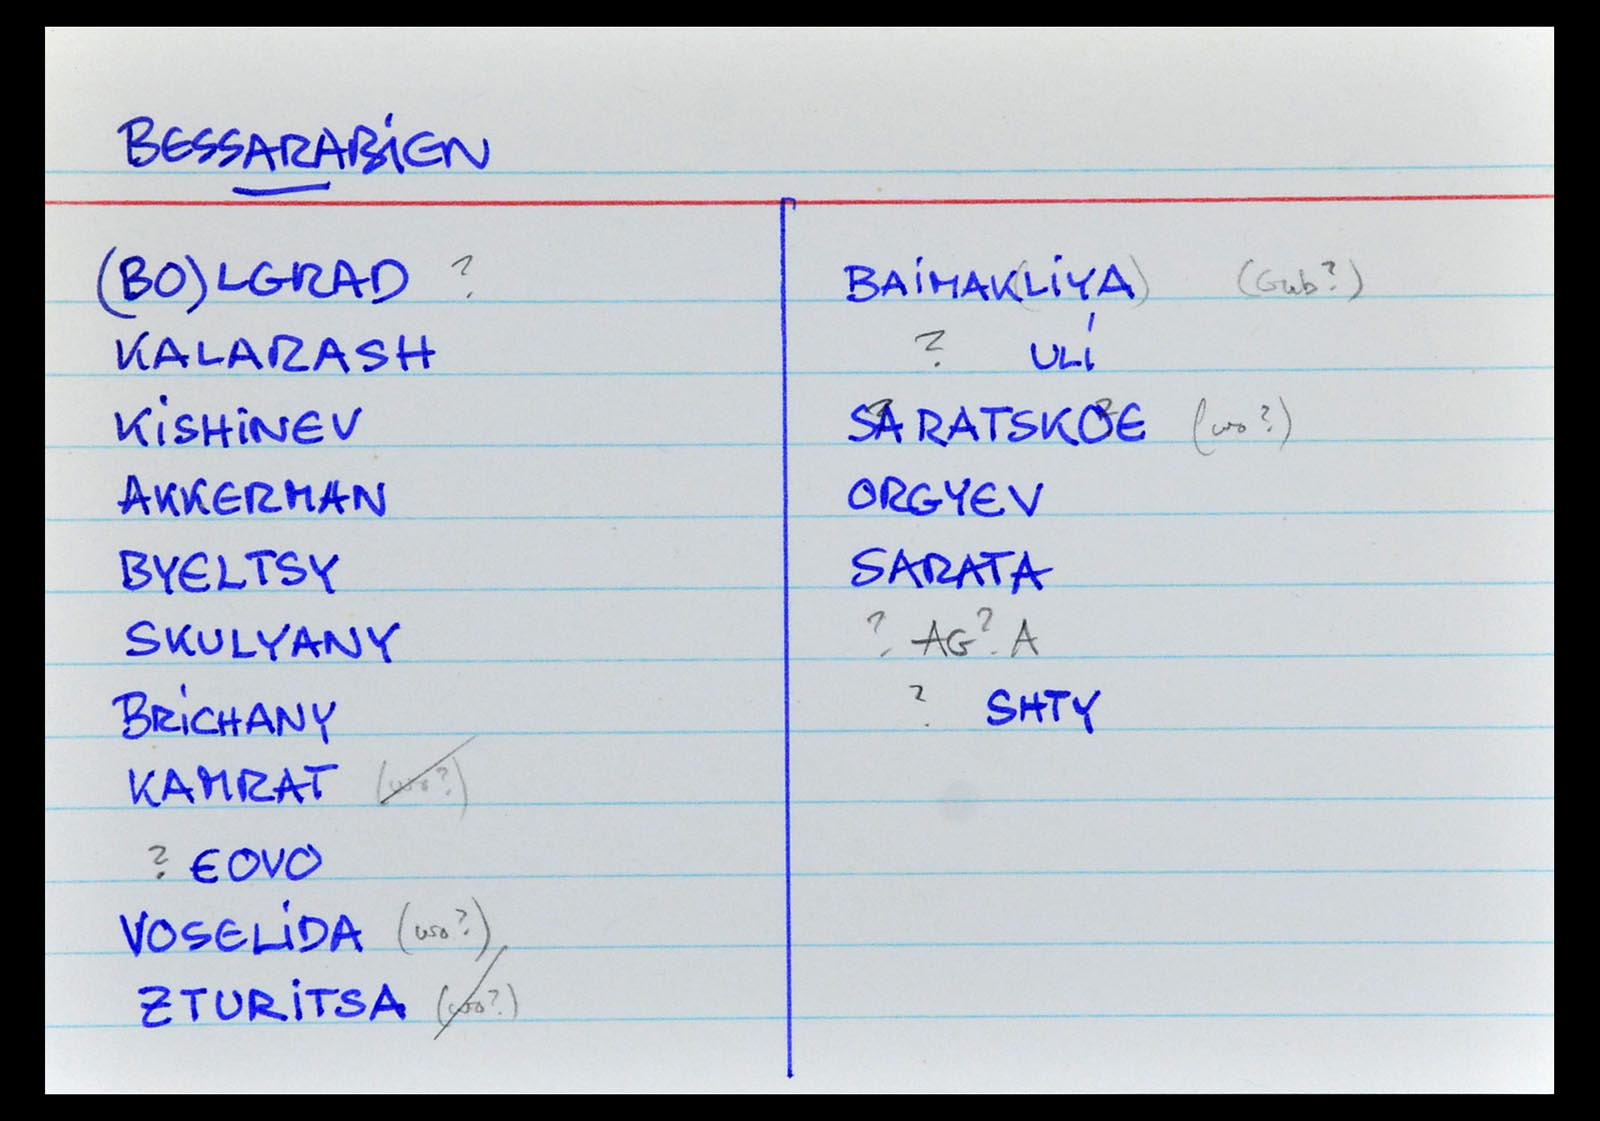 BESSARABIEN
(BO)LGRAD ?
KALARASH
KISHINEV
AKKERMAN
BYELTSY
SKULYANY
BRICHANY
KAMRAT (wo?)
? EOVO
VOSELIDA (wo?)
ZTURITSA (wo?)
BAIMAK(LIYA) (Gub?)
? ULI
SARATSKOE (wo?)
ORGYEV
SARATA
? AG?A
? SHTY